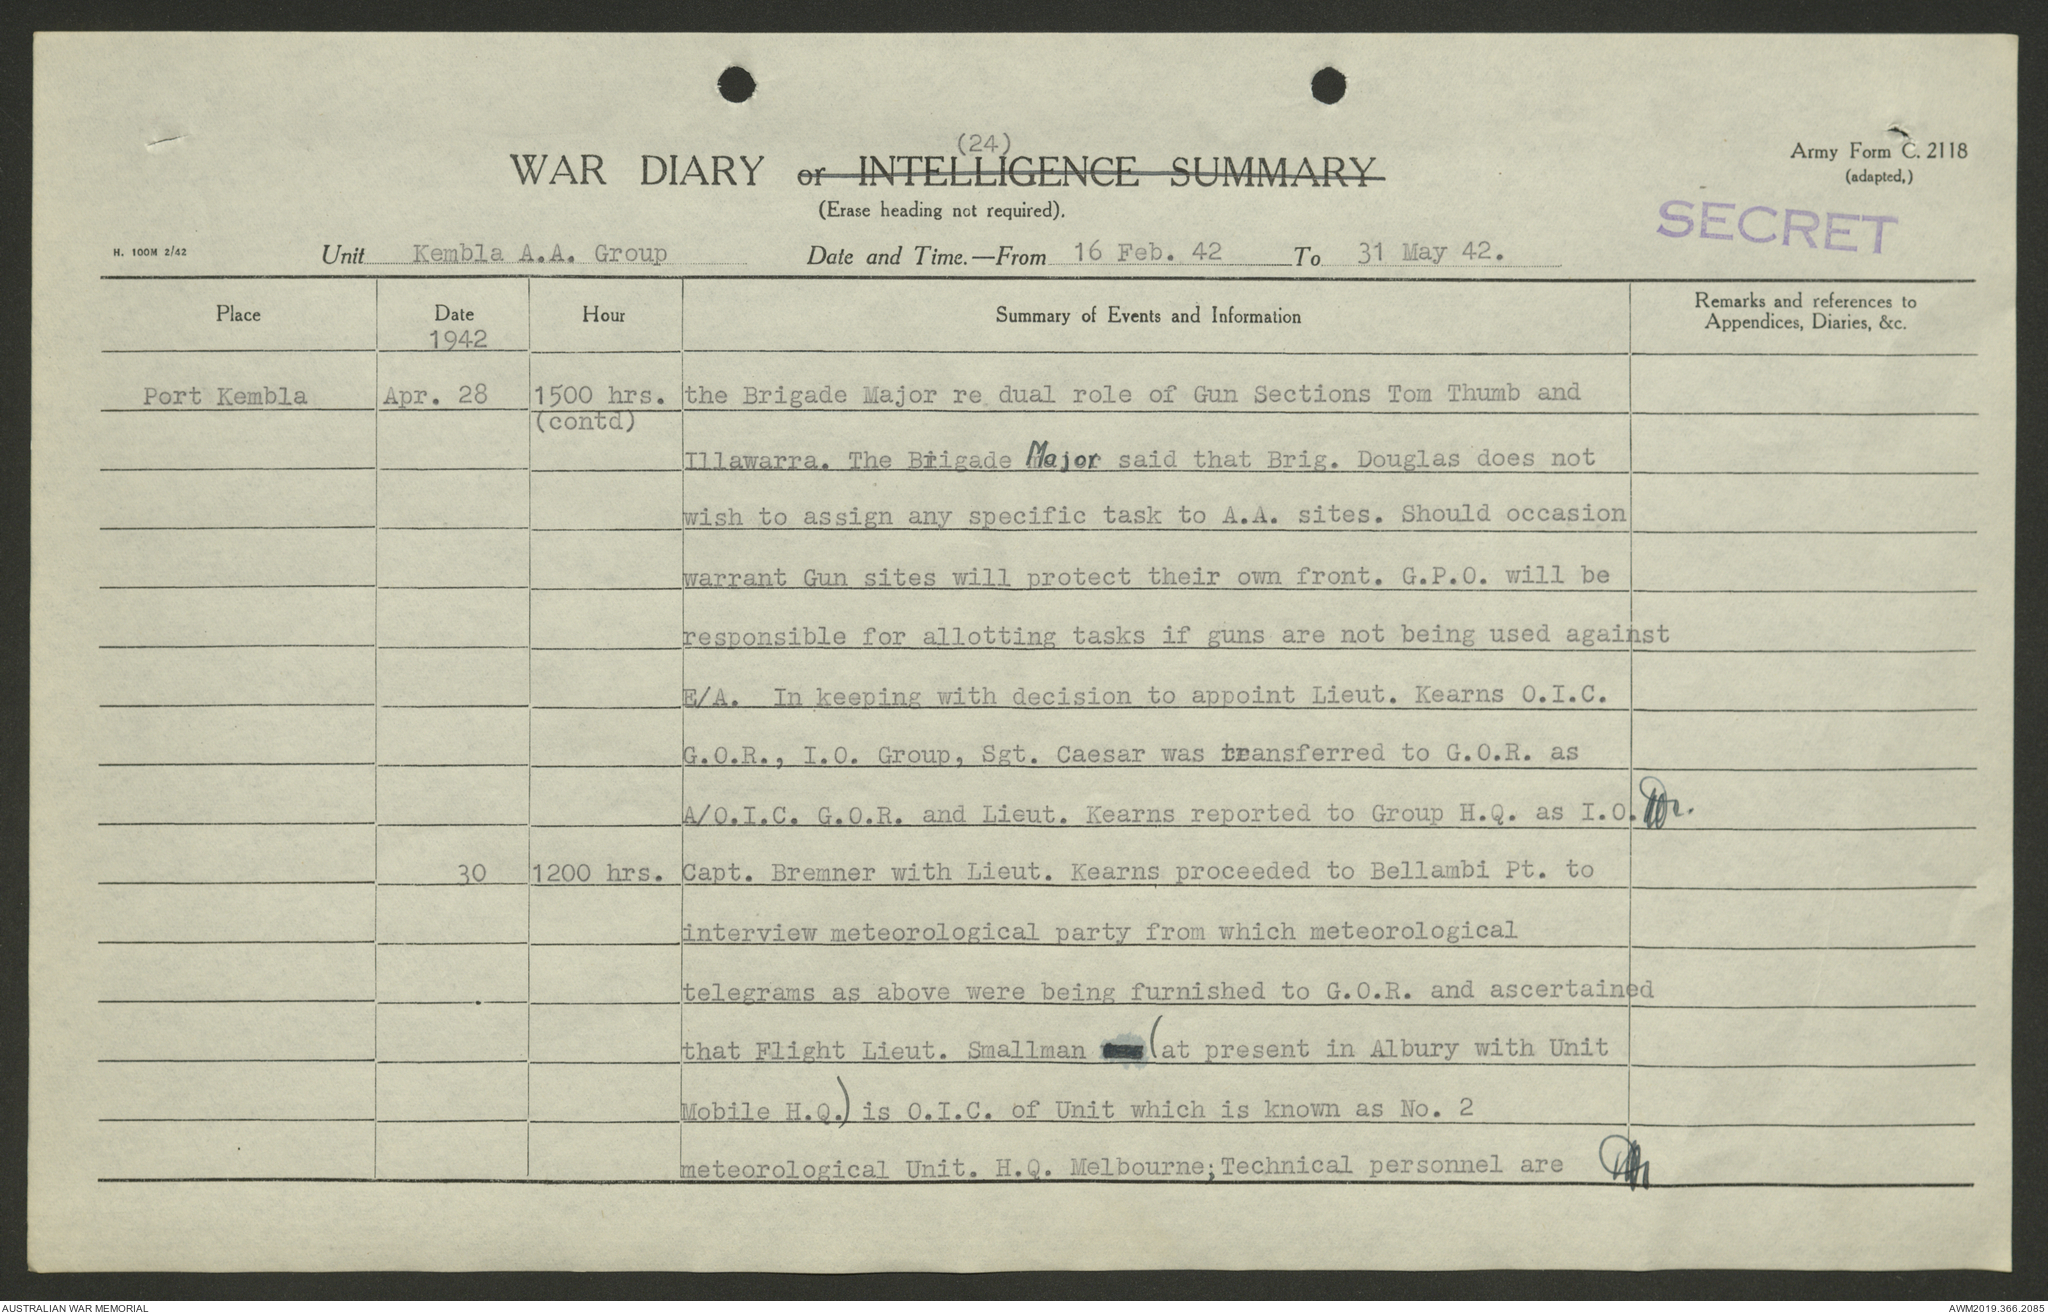 (24)
WAR DIARY or INTELLIGENCE SUMMARY
(Erase heading not required).
Army Form C. 2118
(adapted,)
SECRET
H. 100M 2/42
Unit Kembla A.A. Group Date and Time.—From 16 Feb. 42 To 31 May 42.
Place Date Hour Summary of Events and Information Remarks and references to
Appendices, Diaries, &c.
1942
Port Kembla Apr. 28 1500 hrs. the Brigade Major re dual role of Gun Sections Tom Thumb and
(contd)
Illawarra. The Brigade Major said that Brig. Douglas does not
wish to assign any specific task to A.A. sites. Should occasion
warrant Gun sites will protect their own front. G.P.O. will be
responsible for allotting tasks if guns are not being used against
E/A. In keeping with decision to appoint Lieut. Kearns O.I.C.
G.O.R., I.O. Group, Sgt. Caesar was transferred to G.O.R. as
A/O.I.C. G.O.R. and Lieut. Kearns reported to Group H.Q. as I.O.
30 1200 hrs. Capt. Bremner with Lieut. Kearns proceeded to Bellambi Pt. to
interview meteorological party from which meteorological
telegrams as above were being furnished to G.O.R. and ascertained
that Flight Lieut. Smallman (at present in Albury with Unit
Mobile H.Q.) is O.I.C. of Unit which is known as No. 2
meteorological Unit. H.Q. Melbourne; Technical personnel are
AUSTRALIAN WAR MEMORIAL
AWM2019.366.2085